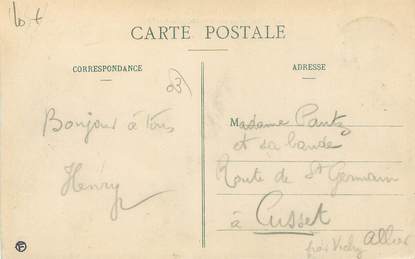 CARTE POSTALE
CORRESPONDANCE
ADRESSE
03
Bonjour à tous
Henry
Madame Pantz
et sa bande
Route de St Germain
à Cusset
près Vichy Allier